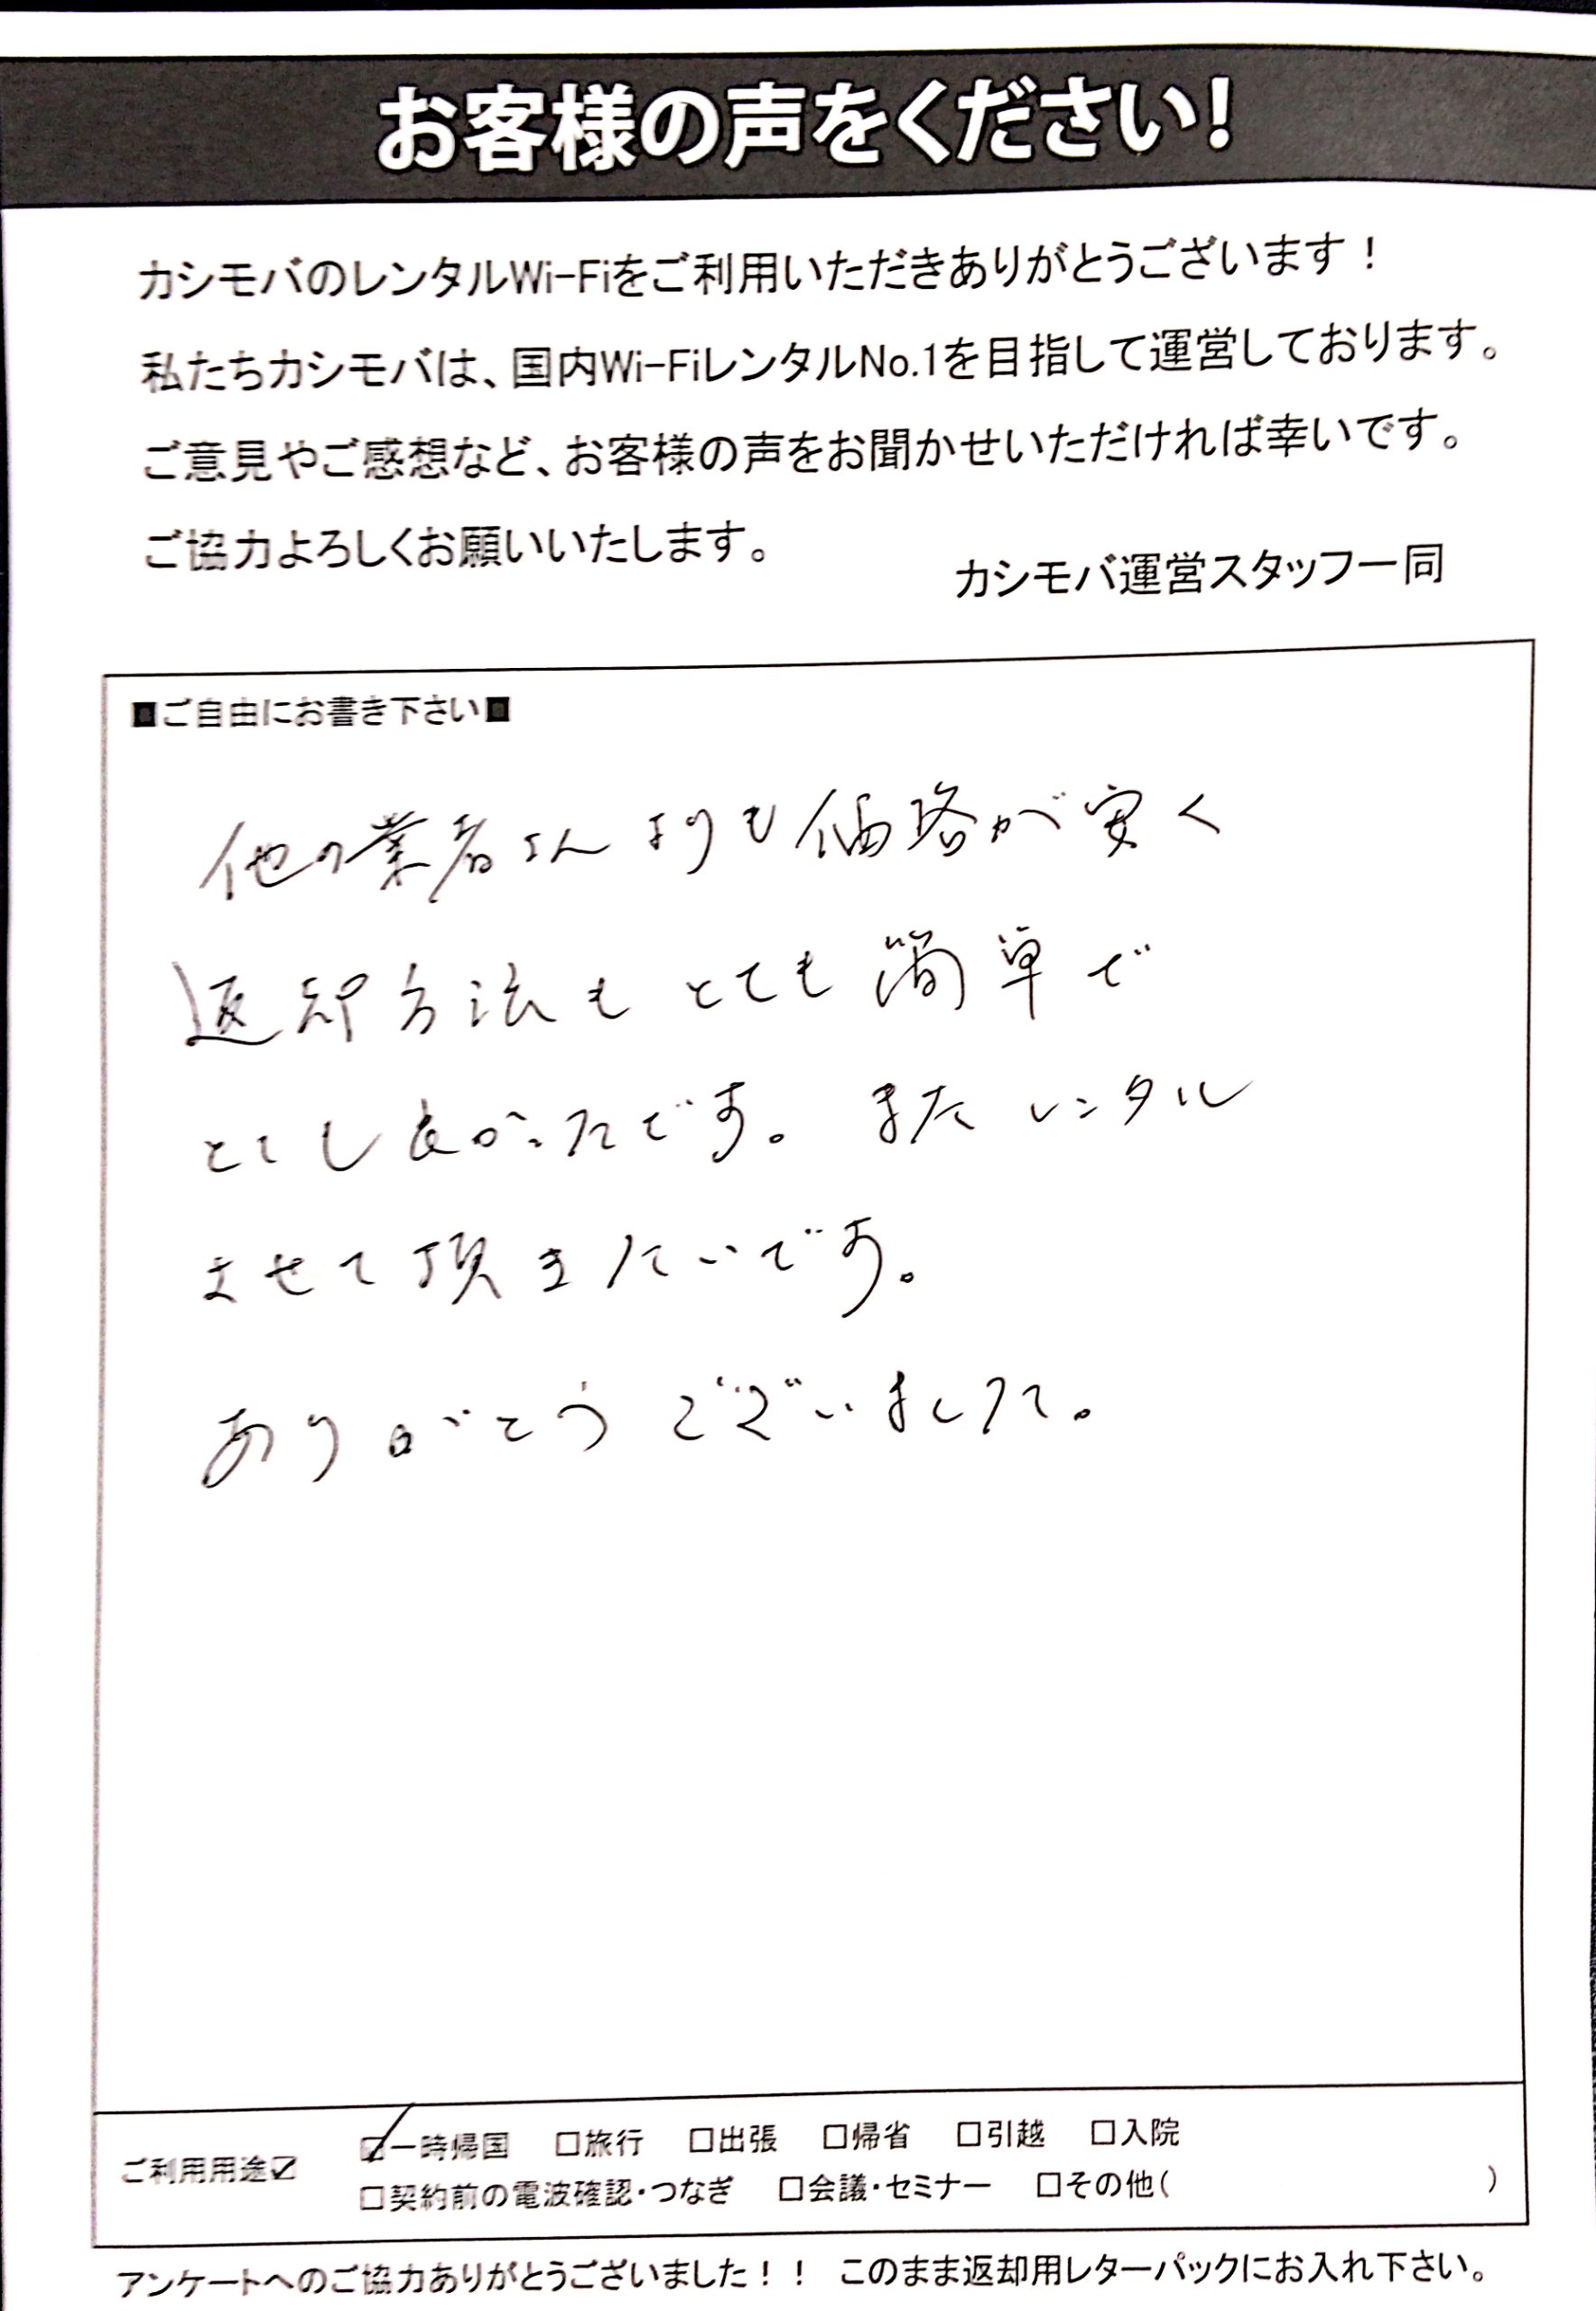 お客様の声をください!
カシモバのレンタルWi-Fiをご利用いただきありがとうございます！
私たちカシモバは、国内Wi-FiレンタルNo.1を目指して運営しております。
ご意見やご感想など、お客様の声をお聞かせいただければ幸いです。
ご協力よろしくお願いいたします。
カシモバ運営スタッフ一同
■ご自由にお書き下さい■
他の業者さんよりも価格が安く
返却方法もとても簡単で
とても良かったです。またレンタル
させて頂きたいです。
ありがとうございました。
ご利用用途☑
☑一時帰国 □旅行 □出張 □帰省 □引越 □入院
□契約前の電波確認・つなぎ □会議・セミナー □その他( )
アンケートへのご協力ありがとうございました！！ このまま返却用レターパックにお入れ下さい。